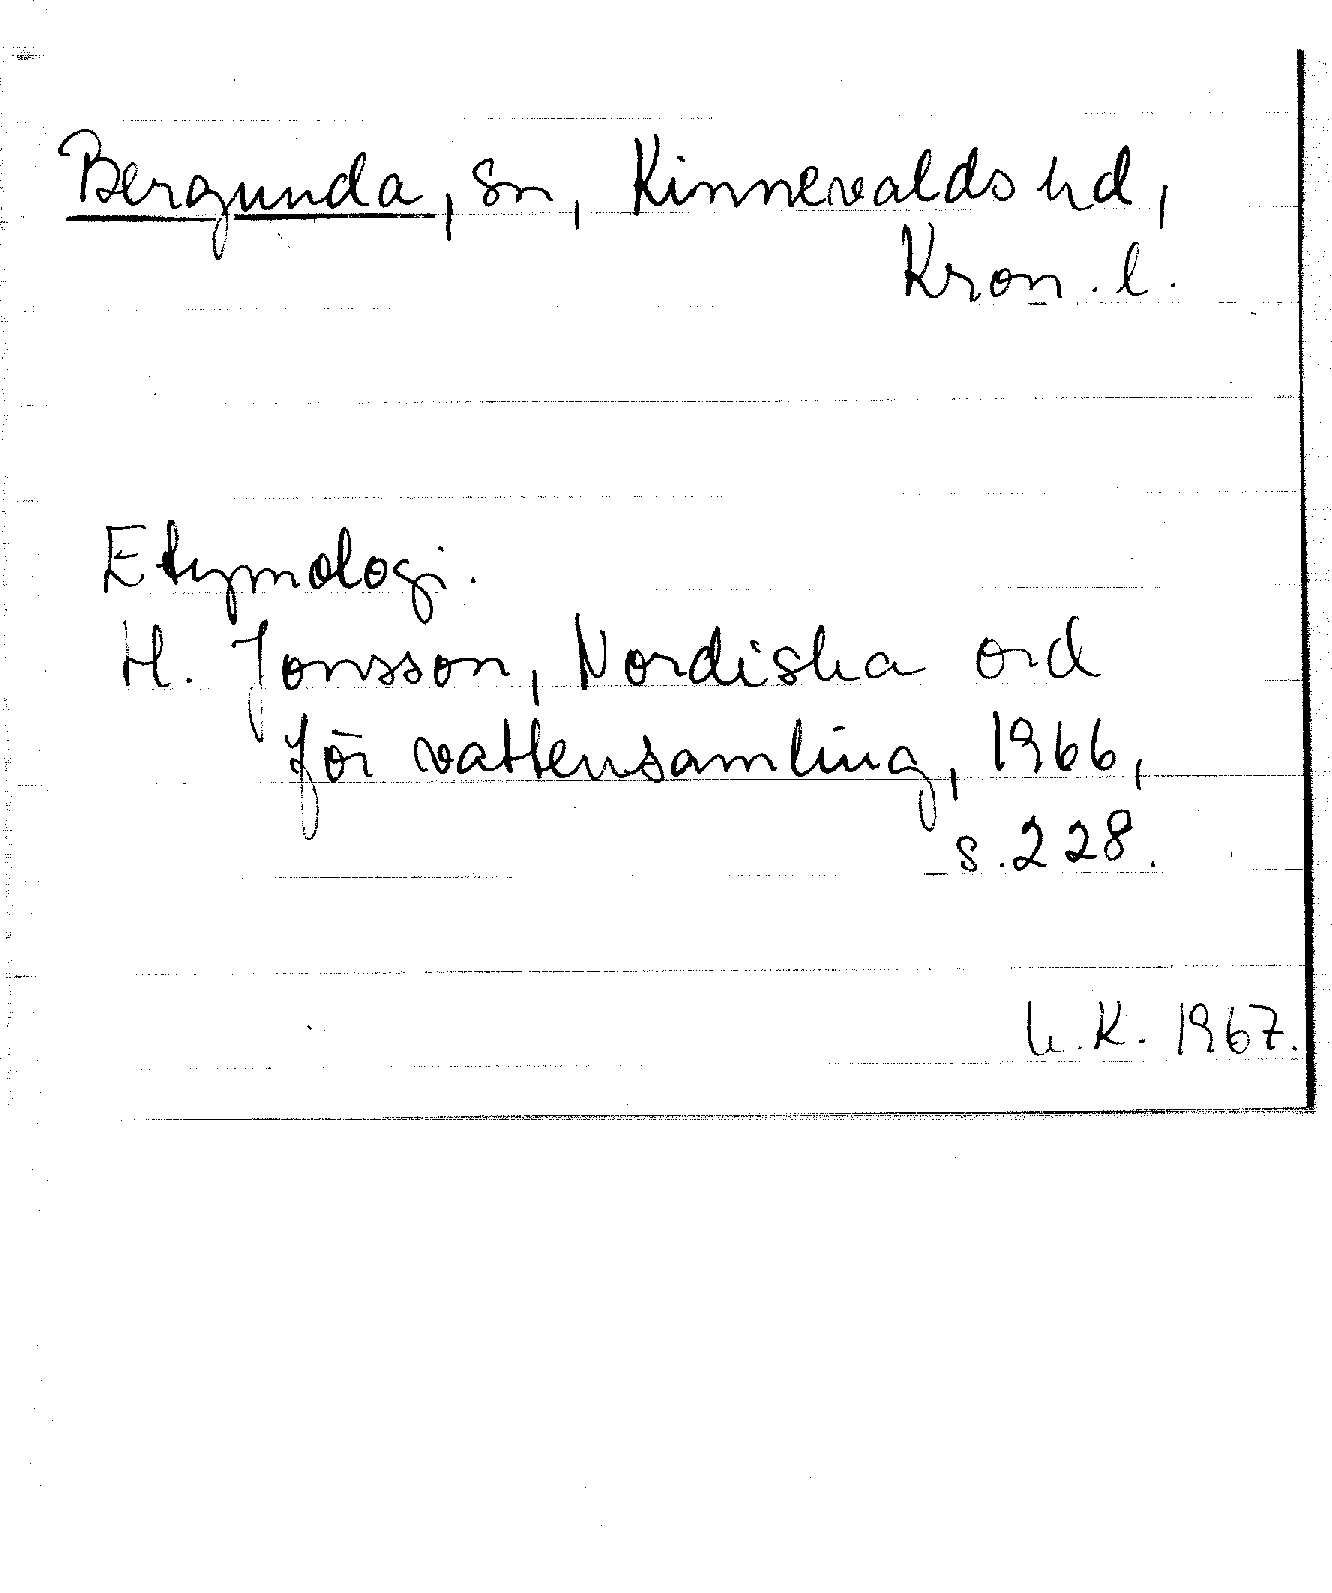 Bergunda, sn, Kinnevalds hd,
Kron. l.
Etymologi.
H. Jonsson, Nordiska ord
för vattensamling, 1966,
s. 228.
K. 1967.